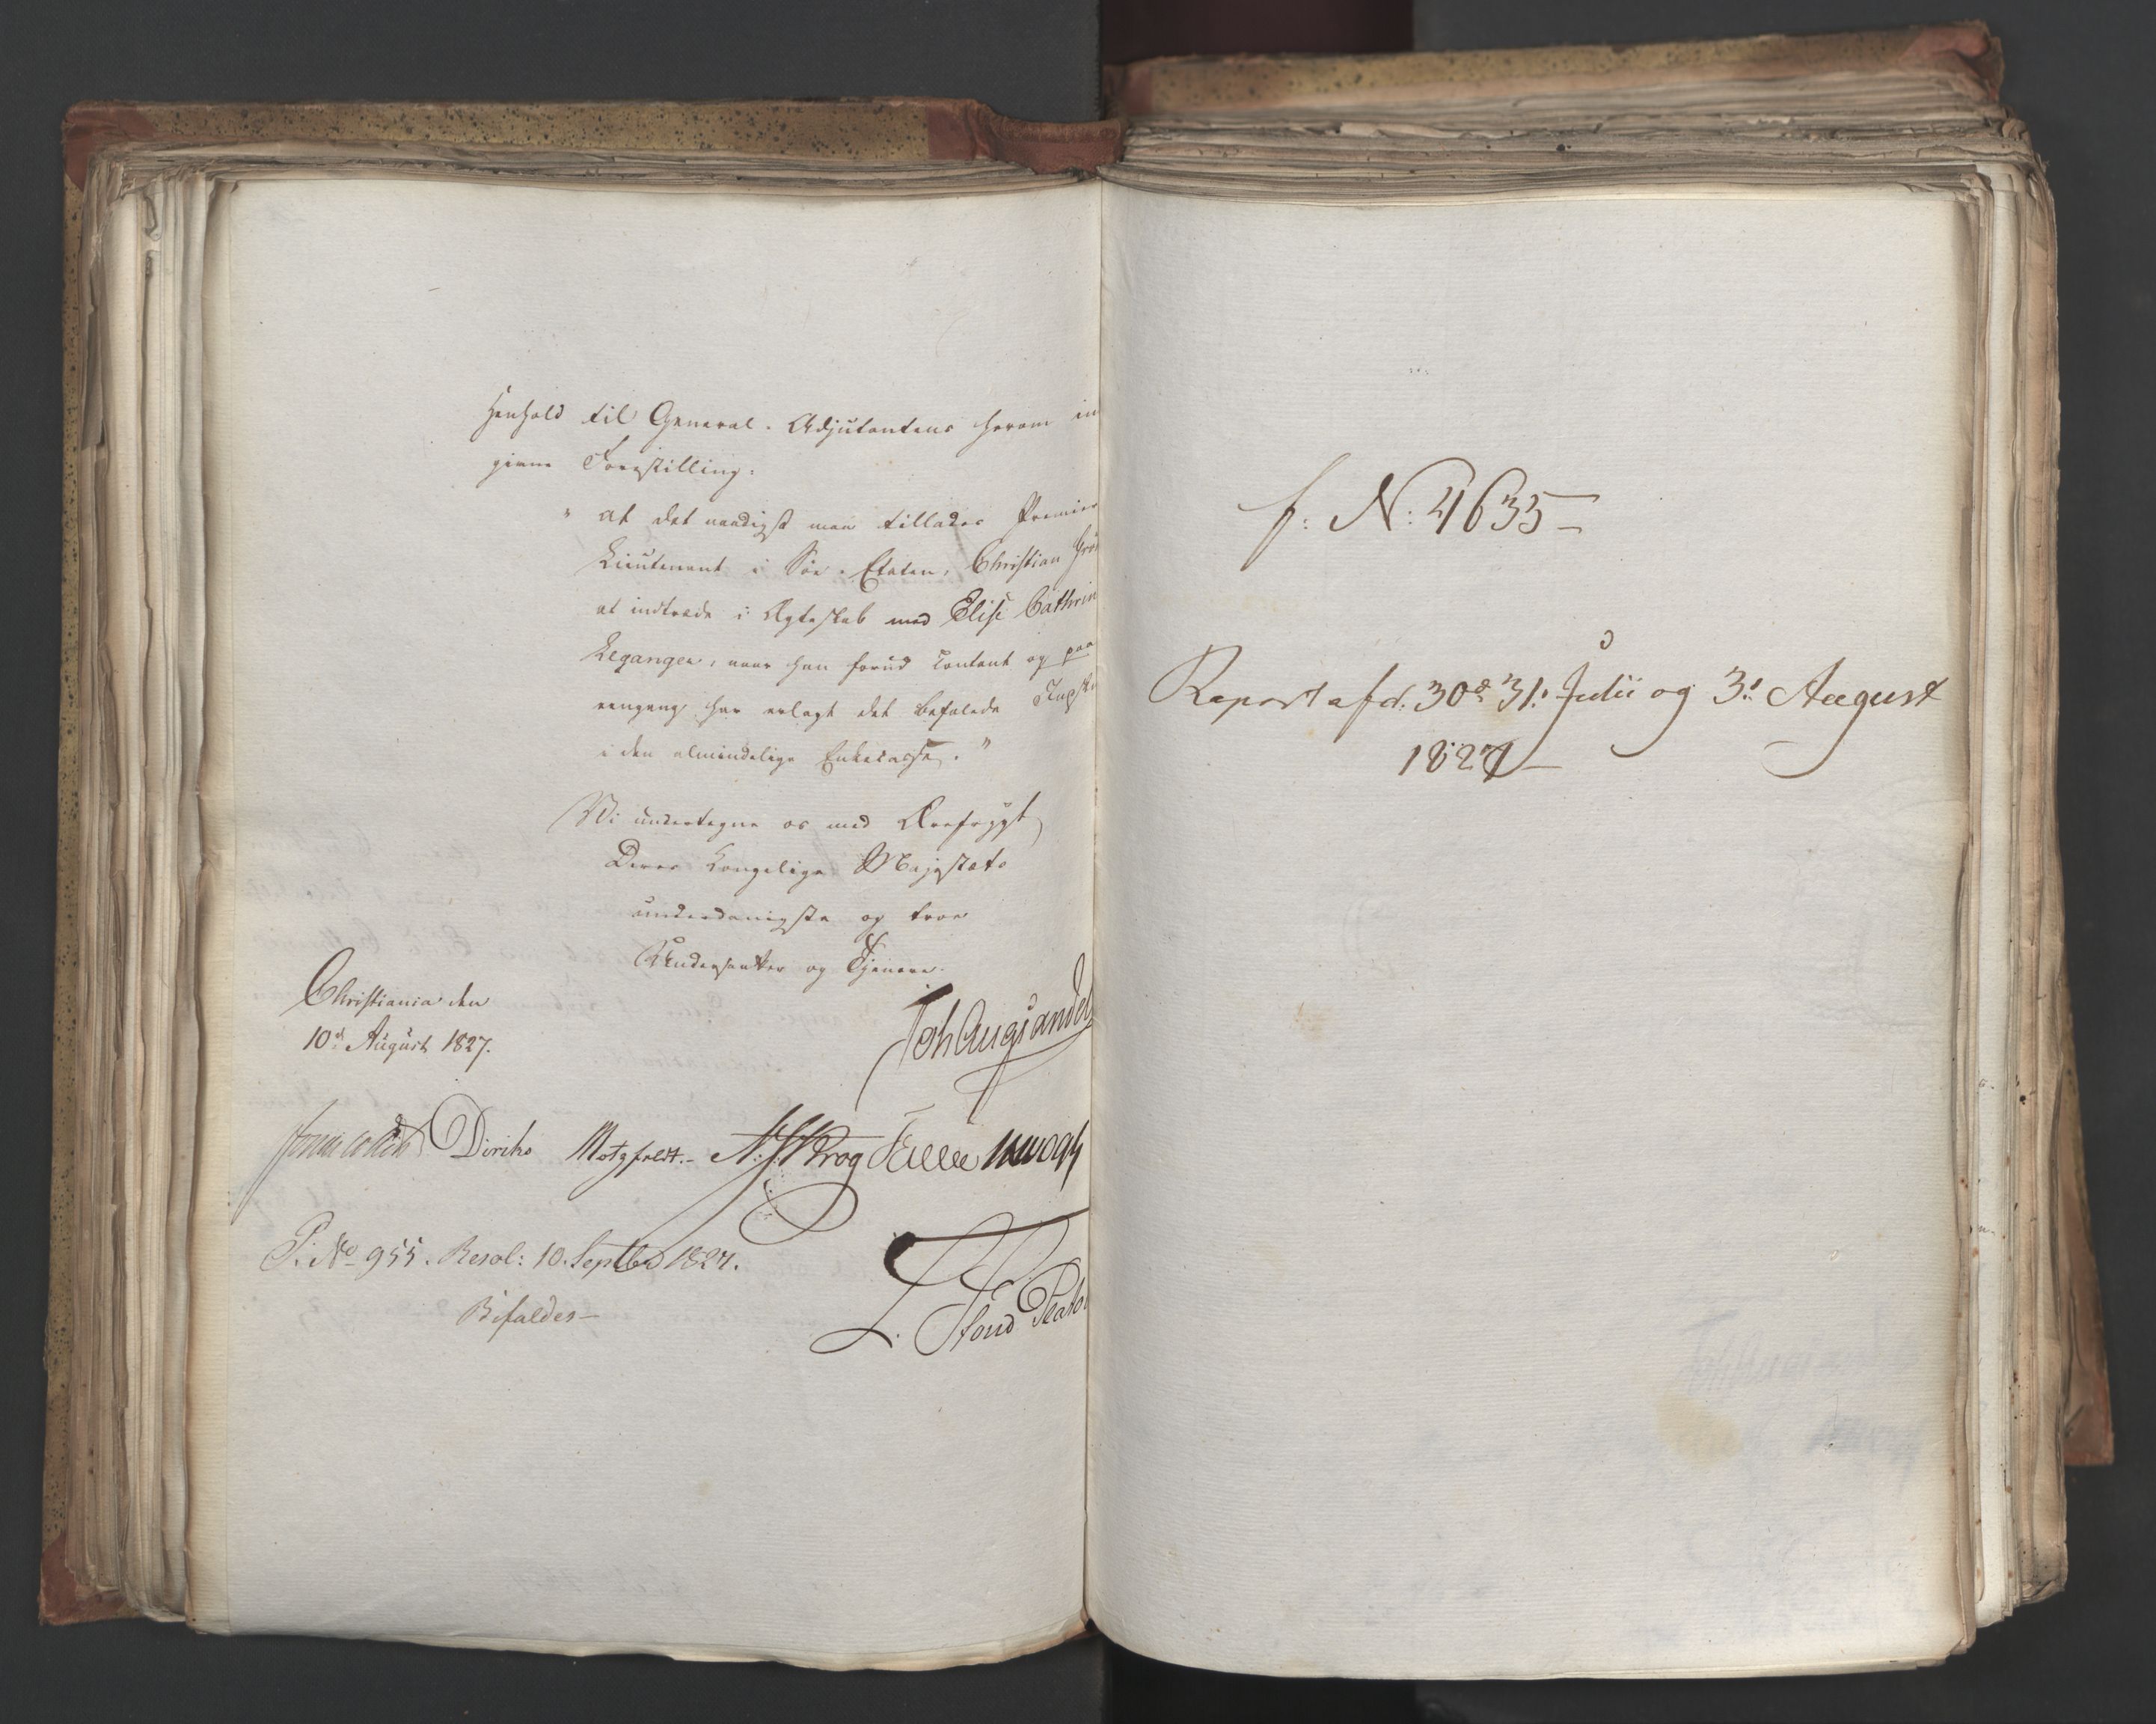 Henhold til General-Adjutantens herom in
givne Forestilling:
" at det naadigst maa tillades Premier
Lieutenant i Søe-Etaten, Christian
at indtræde i Ægteskab med Elise Cathrin
Leganger, naar han forud contant og paa
eengang har erlagt det befalede
i den almindelige Enkecasse."
Vi undertegne os med Ærefrygt
Deres Kongelige Majestæts
underdanigste og troe
Undersaatter og Tjenere.
Christiania den
10d August 1827.
Joh Aug Sandel
Jonas Collett Diriks Motzfeldt.- N. J. Krog
P: No 955. Resol: 10. Septbr 1827.
Bifaldes-
f: N: 4635-
Report af d. 30d 31: Julii og 3: August
1827-